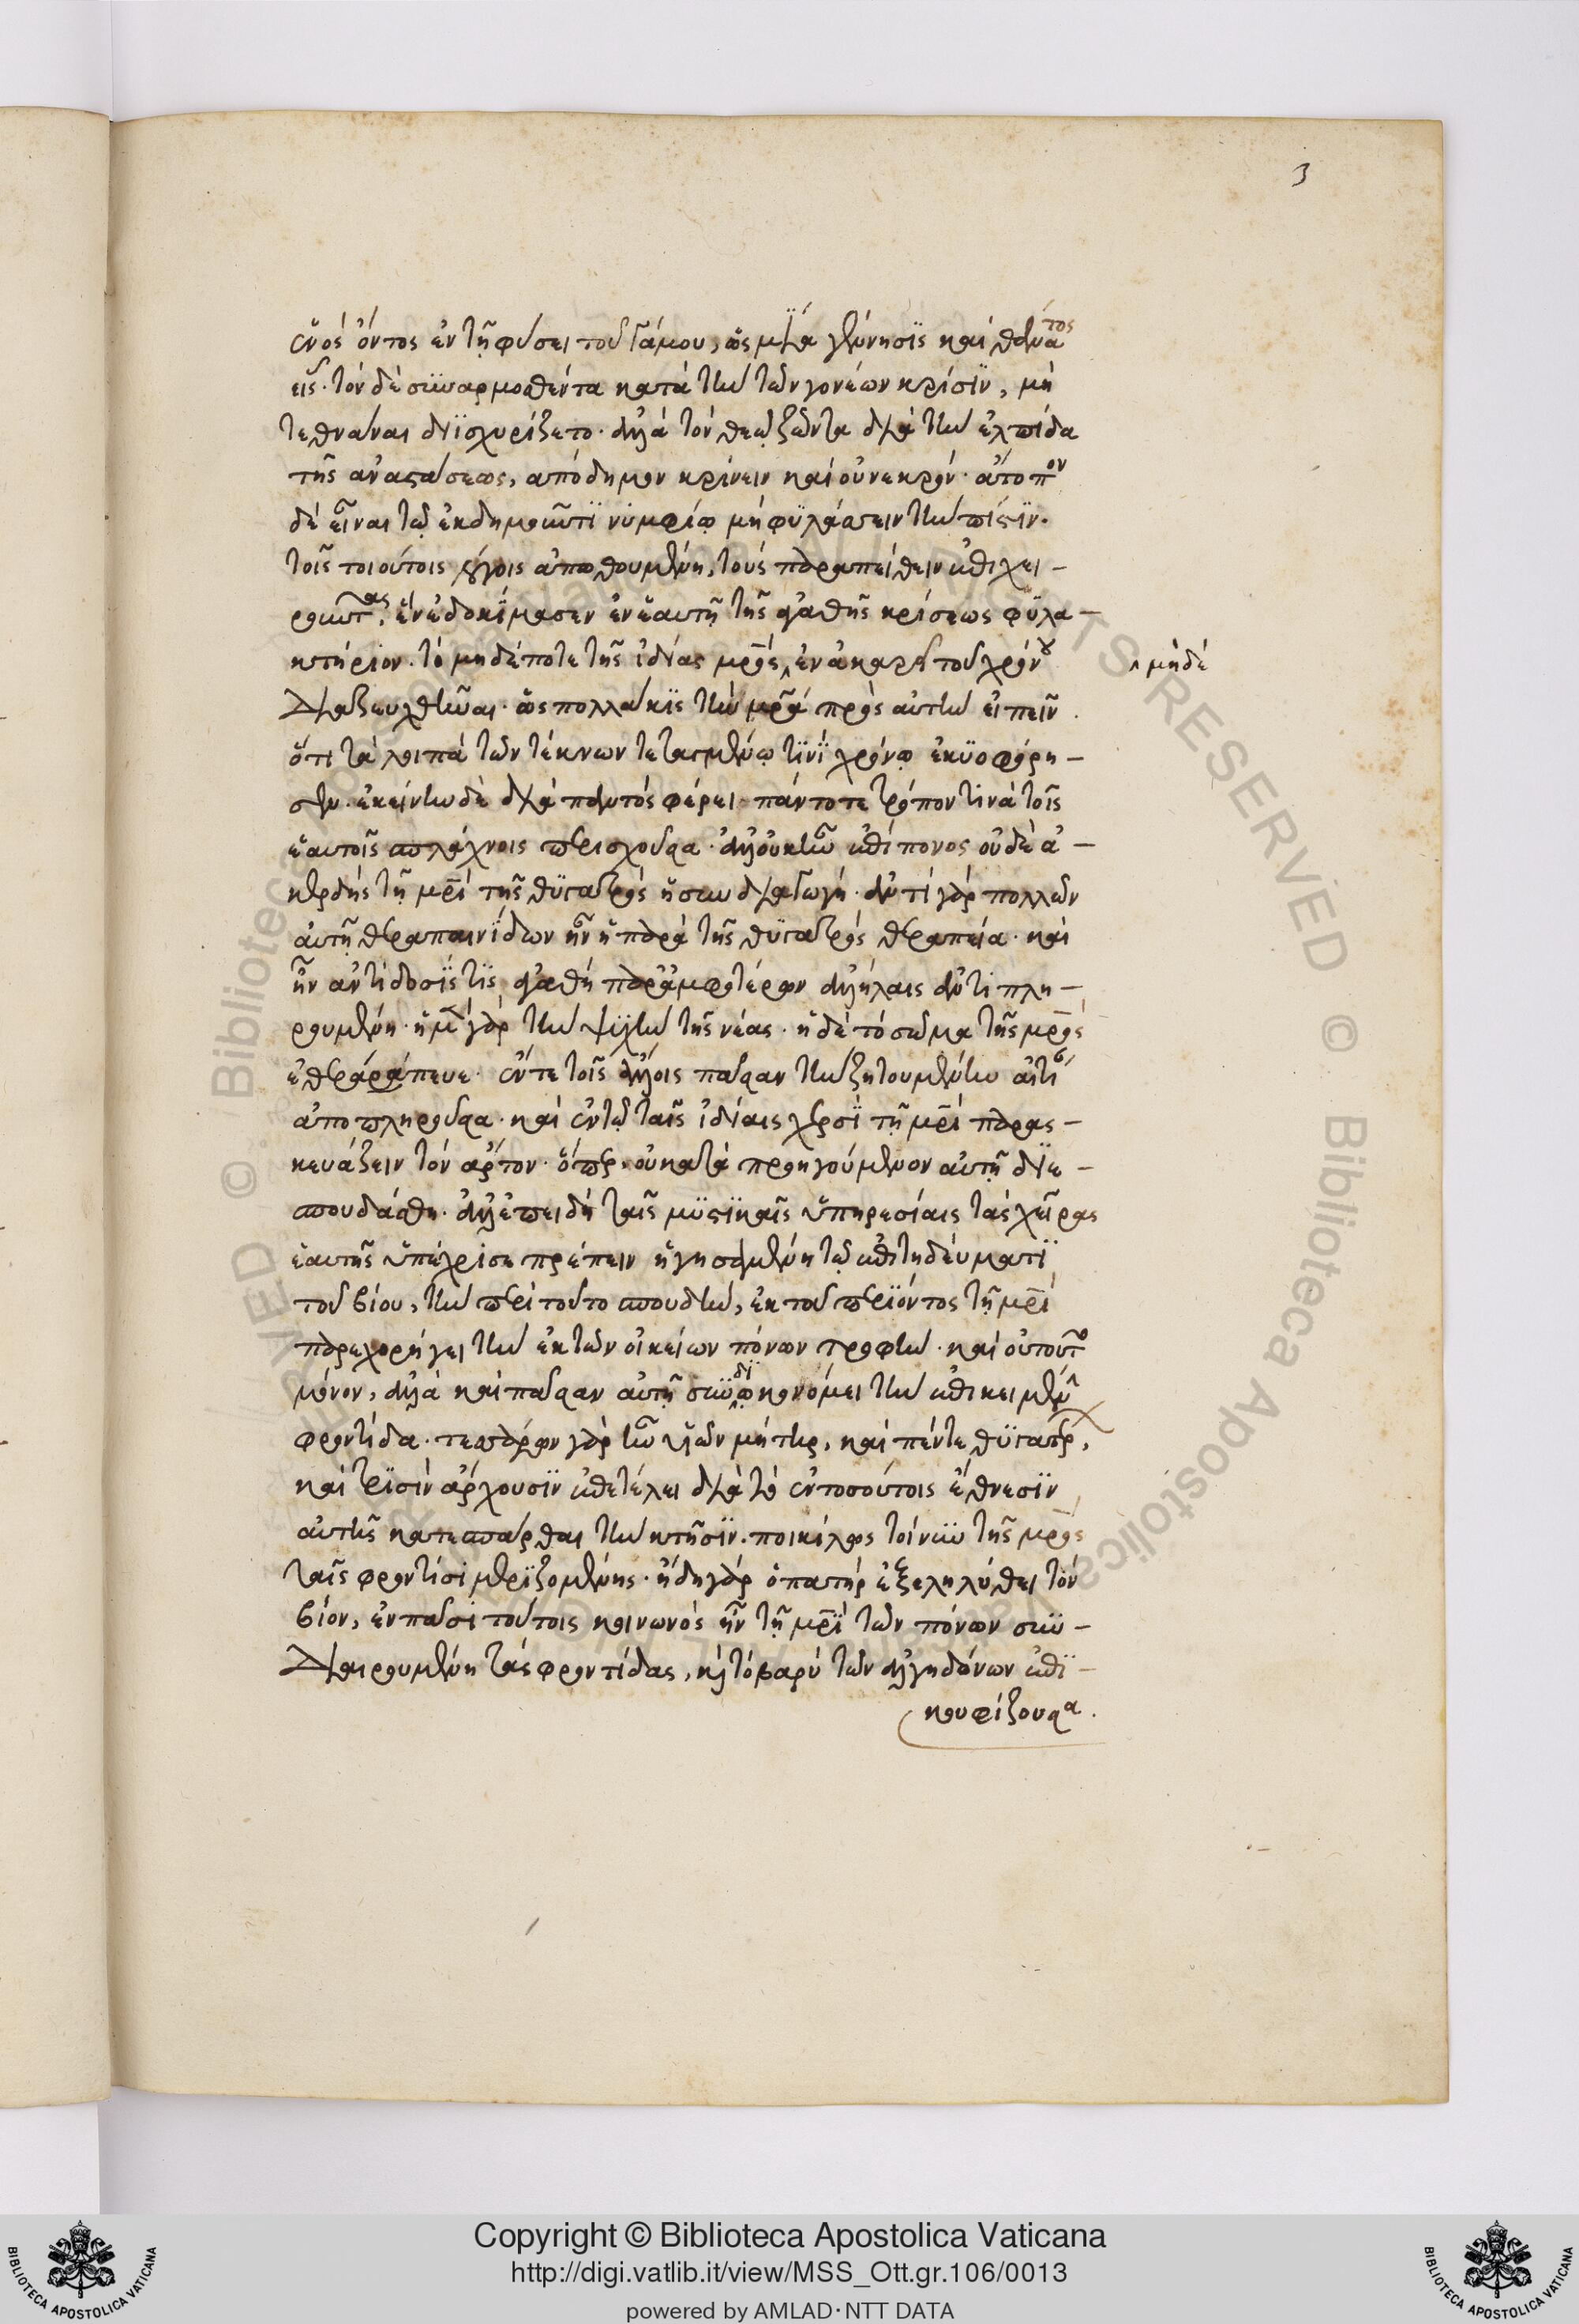 3
ἑνὸς ὄντος ἐν τῇ φύσει τοῦ γάμου, ὡς μία γένησις καὶ θάνατος
εἷς· τὸν δὲ συναρμοσθέντα κατὰ τὴν τῶν γονέων κρίσιν, μὴ
τεθνάναι διϊσχυρίζετο· ἀλλὰ τὸν θεῷ ζῶντα διὰ τὴν ἐλπίδα
τῆς ἀναστάσεως, ἀπόδημον κρίνειν καὶ οὐ νεκρόν· ἄτοπον
δὲ εἶναι τῷ ἐκδημοῦντι νυμφίῳ μὴ φυλάσσειν τὴν πίστιν.
τοῖς τοιούτοις λόγοις ἀπωθουμένη, τοὺς παραπείθειν ἐπιχει-
ροῦντας, ἓν ἐδοκίμασεν ἐν ἑαυτῇ τῆς ἀγαθῆς κρίσεως φυλα-
κτήριον· τὸ μηδέποτε τῆς ἰδίας μρ̅ς ἐν ἀκαρεῖ τοῦ χρόνου
μηδὲ
διαζευχθῆναι· ὡς πολλάκις τὴν μρ̅α πρὸς αὐτὴν εἰπεῖν
ὅτι τὰ λοιπὰ τῶν τέκνων τεταγμένῳ τινὶ χρόνῳ ἐκυοφόρη-
σεν· ἐκείνην δὲ διὰ παντὸς φέρει πάντοτε τρόπον τινὰ τοῖς
ἑαυτοῖς σπλάχνοις περισχοῦσα· ἀλλ' οὐκ ἦν ἐπίπονος οὐδὲ ἀ-
κερδὴς τῇ μρ̅ι τῆς θυγατρὸς ἡ συνδιαγωγή· ἀντὶ γὰρ πολλῶν
αὐτῇ θεραπαινίδων ἦν ἡ παρὰ τῆς θυγατρὸς θεραπεία· καὶ
ἦν ἀντίδοσίς τις ἀγαθὴ παρ' ἀμφοτέρων ἀλλήλαις ἀντιπλη-
ρουμένη· ἡ μὲν γὰρ τὴν ψυχὴν τῆς νέας· ἡ δὲ τὸ σῶμα τῆς μρ̅ς
ἐθεράράπευε· ἔν τε τοῖς ἄλλοις πᾶσαν τὴν ζητουμένην
ἀποπληροῦσα· καὶ ἐν τῷ ταῖς ἰδίαις χερσὶ τῇ μρ̅ι παρασ-
κευάζειν τὸν ἄρτον· ὅπερ, οὐ κατὰ προηγούμενον αὐτῇ διε-
σπουδάσθη· ἀλλ' ἐπειδὴ ταῖς μυστικαῖς ὑπηρεσίαις τὰς χεῖρας
ἑαυτῆς ὑπέχρισε πρέπειν ἡγησαμένη τῷ ἐπιτηδεύματι
τοῦ βίου, τὴν περὶ τοῦτο σπουδὴν, ἐκ τοῦ περιόντος τῇ μρ̅ι
παρεχορήγει τὴν ἐκ τῶν οἰκείων πόνων τροφὴν· καὶ οὐ τοῦτο
μόνον, ἀλλὰ καὶ πᾶσαν αὐτῇ συνδιῳκονόμει τὴν ἐπικειμένην
φροντίδα· τεσσάρων γὰρ ἦν υἱῶν μήτηρ, καὶ πέντε θυγατρ,
καὶ τρισὶν ἄρχουσιν ἐπετέλει διὰ τὸ ἐν τοσούτοις ἔθνεσιν
αὐτῆς κατεσπάρθαι τὴν κτῆσιν· ποικίλως τοίνυν τῆς μρ̅ς
ταῖς φροντίσι μεριζομένης· ἤδη γὰρ ὁ πατὴρ ἐξεληλύθει τὸν
βίον, ἐν πᾶσι τούτοις κοινωνὸς ἦν τῇ μρ̅ι τῶν πόνων συν-
διαιρουμένη τὰς φροντίδας, κ̀ τὸ βαρὺ τῶν ἀλγηδόνων ἐπι-
κουφίζουσα.
© Biblioteca Apostolica Vaticana ALL RIGHTS RESERVED
Copyright © Biblioteca Apostolica Vaticana
http://digi.vatlib.it/view/MSS_Ott.gr.106/0013
powered by AMLAD·NTT DATA
BIBLIOTECA APOSTOLICA VATICANA
BIBLIOTECA APOSTOLICA VATICANA